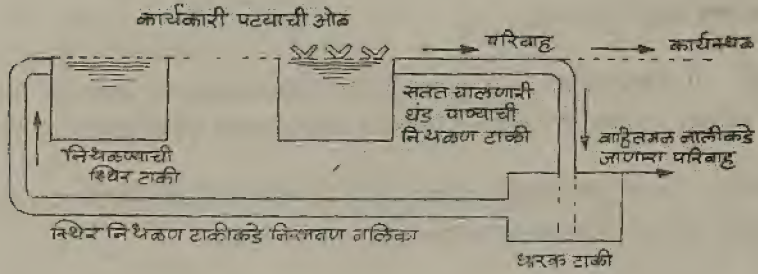 कार्यकारी पटयाची ओळ
परिवाह
कार्यस्थळ
सतत चालणारी
थंड पाण्याची
निथळण टाकी
निथळण्याची
स्थिर टाकी
वाहितमळ नालीकडे
जाणारा परिवाह
स्थिर निथळण टाकीकडे निस्त्रावण नलिका
धारक टाकी